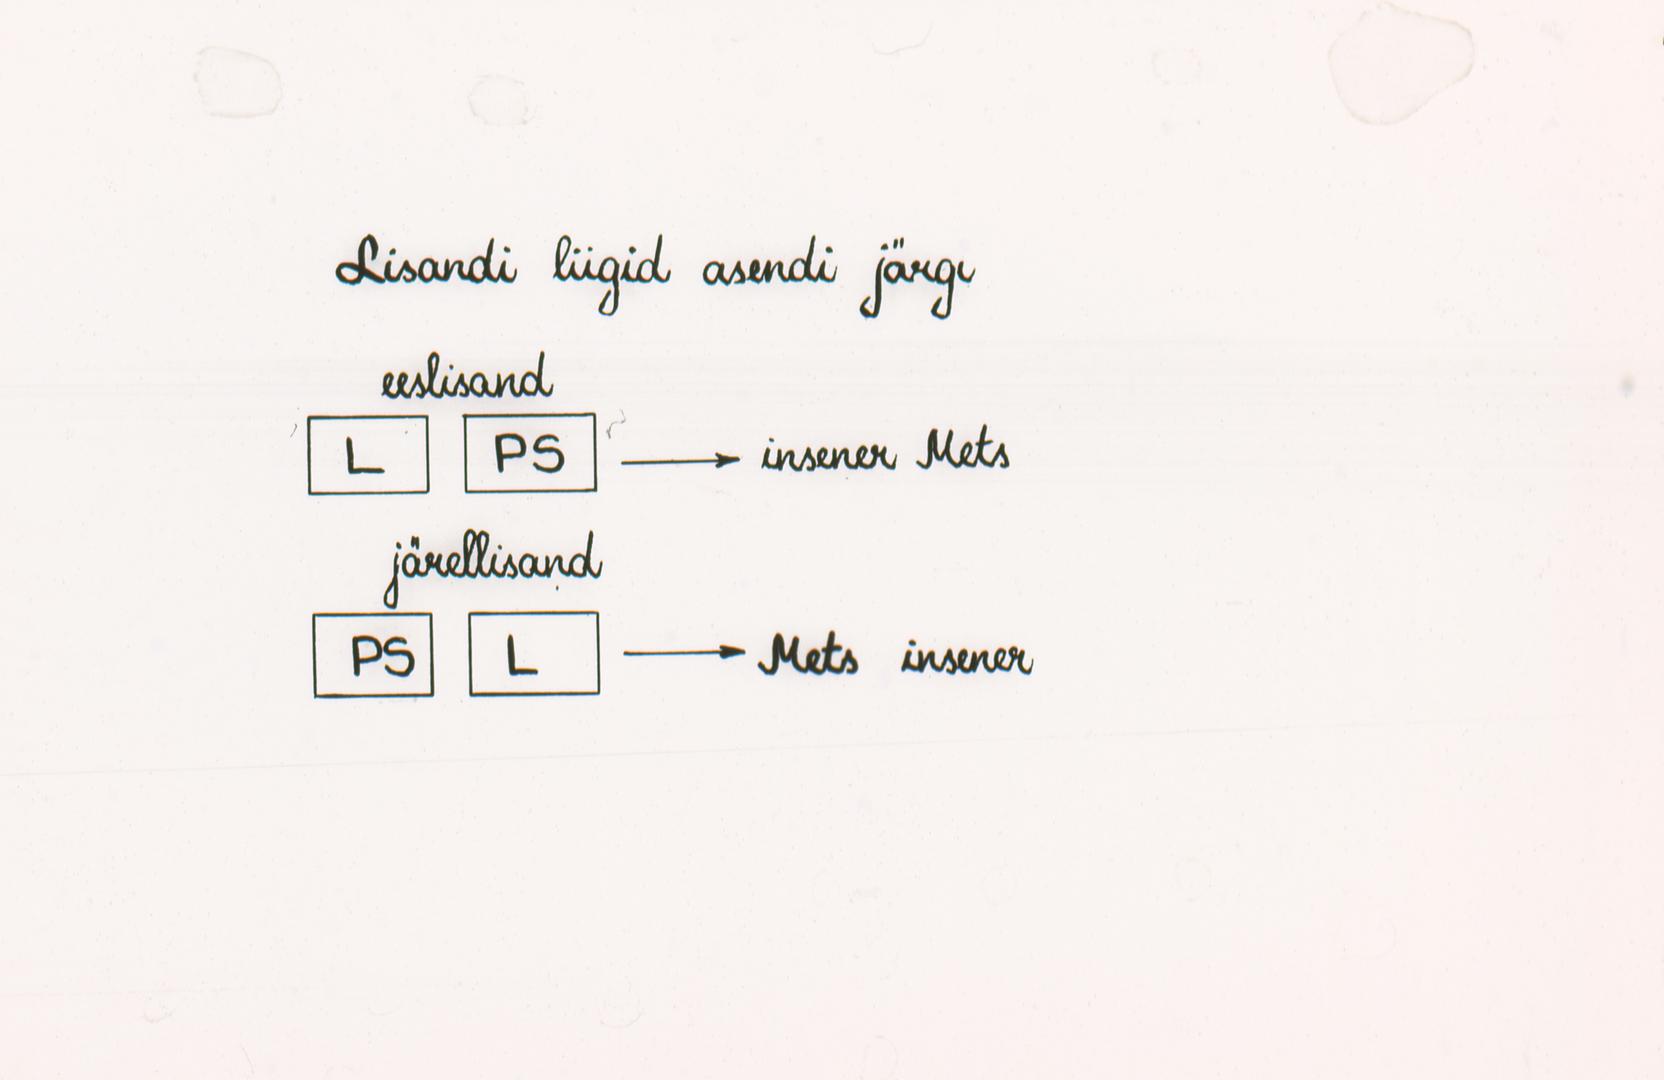 Lisandi liigid asendi järgi
eeslisand
L PS → insener Mets
järellisand
PS L → Mets insener